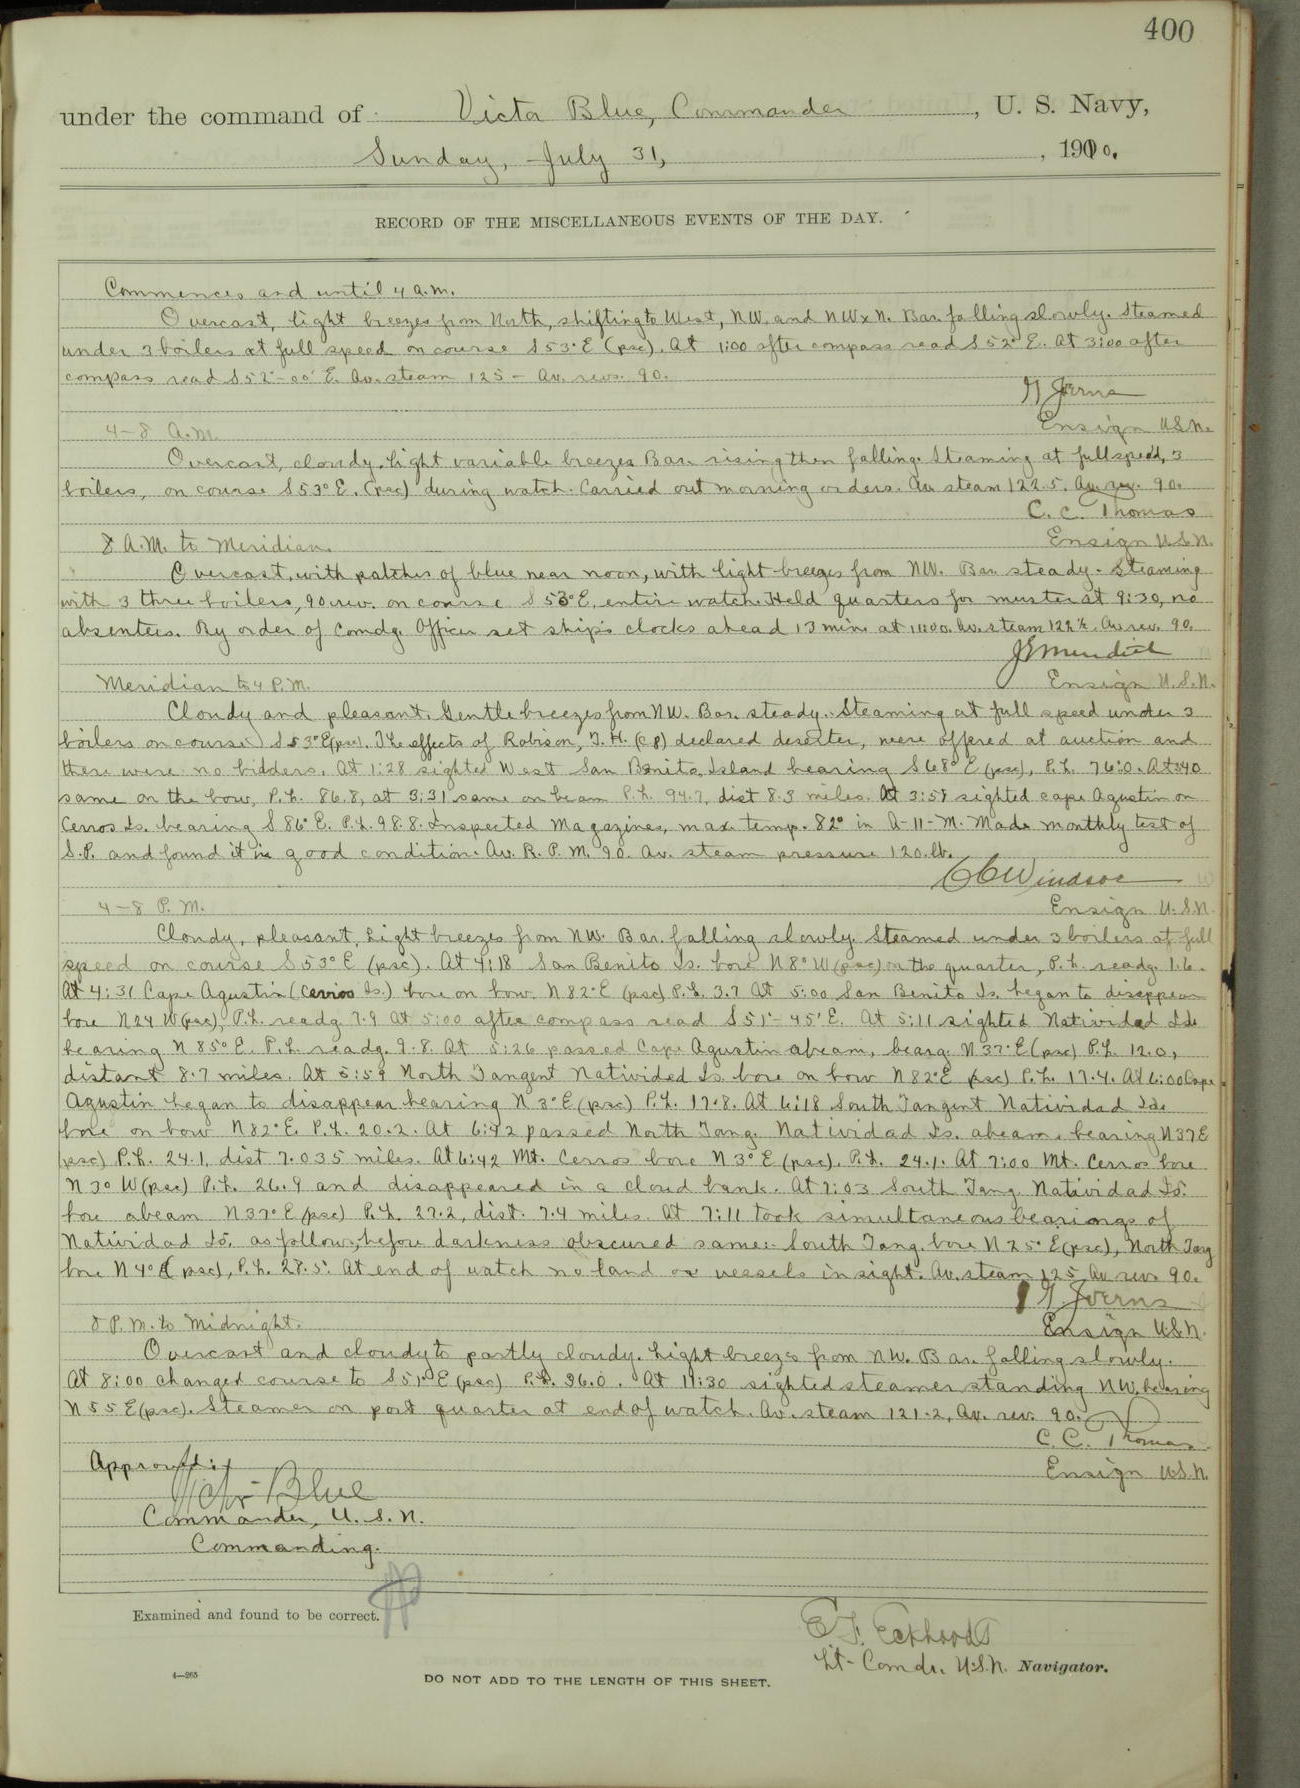 400
under the command of Victor Blue, Commander, U. S. Navy,
Sunday, July 31, , 1910.
RECORD OF THE MISCELLANEOUS EVENTS OF THE DAY.
Commences and until 4 a.m.
Overcast, light breezes from North, shifting to West, NW. and NWxN. Bar. falling slowly. Steamed
under 3 boilers at full speed on course S53°E (psc). At 1:00 after compass read S52°E. At 3:00 after
compass read S52°-00' E. Av. steam 125 - Av. revs. 90.
Ensign U.S.N.
4-8 A.M.
Overcast, cloudy. Light variable breezes Bar. rising then falling. Steaming at full speed, 3
boilers, on course S53°E. (psc) during watch. Carried out morning orders. Av. steam 122.5. Av. rev. 90.
C. C. Thomas
Ensign U.S.N.
8 A.M. to Meridian.
Overcast, with patches of blue near noon, with light breezes from NW. Bar. steady. Steaming
with 3 three boilers, 90 rev. on course S53°E. entire watch. Held quarters for muster at 9:30, no
absentees. By order of Comdg. Officer set ship's clocks ahead 13 min. at 11:00. Av. steam 122½. Av. rev. 90.
Ensign U.S.N.
Meridian to 4 P.M.
Cloudy and pleasant. Gentle breezes from NW. Bar. steady. Steaming at full speed under 3
boilers on course S53°E (psc). The effects of Robison, T. H. (CP) declared deserter, were offered at auction and
there were no bidders. At 1:28 sighted West San Benito Island bearing S68°E (psc), P.L. 76.0. At 2:40
same on the bow, P.L. 86.8, at 3:31 same on beam P.L. 94.7, dist 8.3 miles. At 3:58 sighted cape Agustin on
Cerros Is. bearing S86°E. P.L. 98.8. Inspected Magazines, max. temp. 82° in A-11-M. Made monthly test of
S.P. and found it in good condition. Av. R.P.M. 90. Av. steam pressure 120 lb.
CC Windsor
Ensign U.S.N.
4-8 P.M.
Cloudy, pleasant, Light breezes from NW. Bar. falling slowly. Steamed under 3 boilers at full
speed on course S53°E (psc). At 4:18 San Benito Is. bore N8°W (psc) on the quarter, P.L. readg. 1.6.
At 4:31 Cape Agustin (Cerros Is.) bore on bow N82°E (psc) P.L. 3.7 At 5:00 San Benito Is. began to disappear
bore N24 W (psc), P.L. readg 7.9 At 5:00 after compass read S51°-45'E. At 5:11 sighted Natividad Isl.
bearing N85°E. P.L. readg. 9.8. At 5:26 passed Cape Agustin abeam, bearg. N37°E (psc) P.L. 12.0,
distant 8.7 miles. At 5:59 North Tangent Natividad Is. bore on bow N82°E (psc) P.L. 17.4. At 6:00 Cape
Agustin began to disappear bearing N3°E (psc) P.L. 17.8. At 6:18 South Tangent Natividad Isl.
bore on bow N82°E. P.L. 20.2. At 6:42 passed North Tang. Natividad Is. abeam, bearing N37E
(psc) P.L. 24.1, dist 7.035 miles. At 6:42 Mt. Cerros bore N3°E (psc). P.L. 24.1. At 7:00 Mt. Cerros bore
N3°W (psc) P.L. 26.9 and disappeared in a cloud bank. At 7:03 South Tang. Natividad Is.
bore abeam N37°E (psc) P.L. 27.2, dist. 7.4 miles. At 7:11 took simultaneous bearings of
Natividad Is. as follows, before darkness obscured same:- South Tang. bore N25°E (psc), North Tang
bore N4°E (psc), P.L. 28.5. At end of watch no land or vessels in sight. Av. steam 125. Av. rev. 90.
Ensign U.S.N.
8 P.M. to Midnight.
Overcast and cloudy to partly cloudy. Light breezes from NW. Bar. falling slowly.
At 8:00 changed course to S51°E (psc) P.L. 36.0. At 11:30 sighted steamer standing NW. bearing
N55E (psc). Steamer on port quarter at end of watch. Av. steam 121.2, Av. rev. 90.
C. C. Thomas
Ensign U.S.N.
Approved:
Victor Blue
Commander, U.S.N.
Commanding.
Examined and found to be correct.
E. F. Eckhardt
Lt-Comdr. U.S.N. Navigator.
4—265
DO NOT ADD TO THE LENGTH OF THIS SHEET.